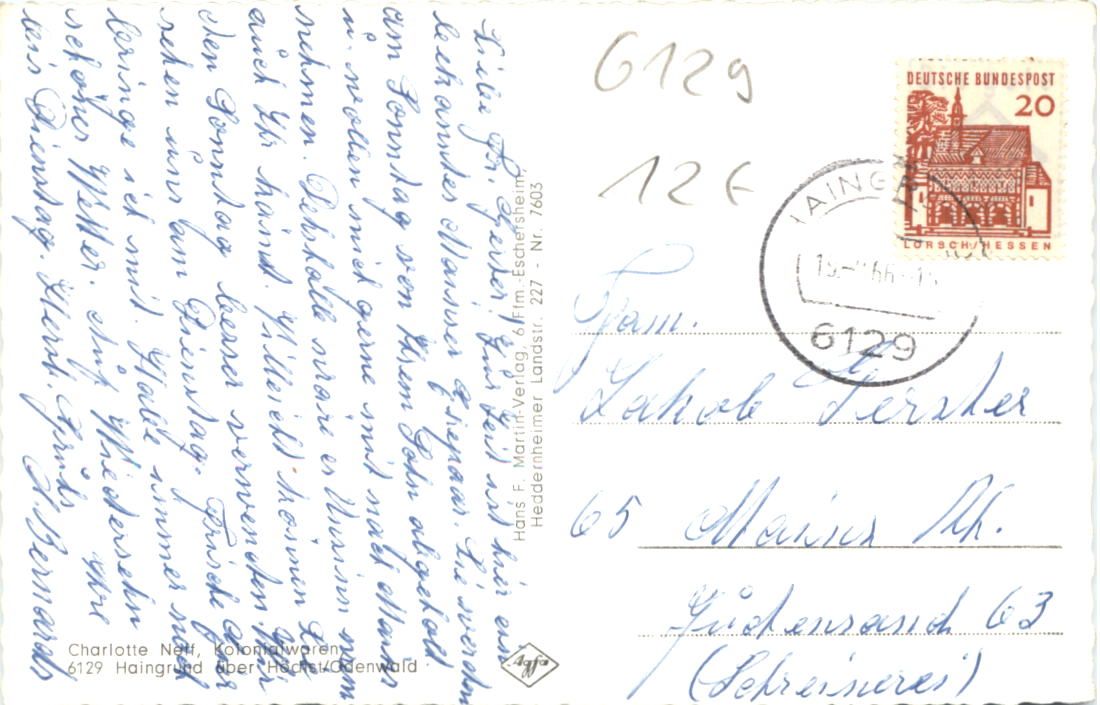 Liebe Fr. Gerster! Zur Zeit ist hier ein
bekanntes Mainzer Ehepaar. Sie werden
am Sonntag von Ihrem Sohn abgeholt
u. wollen mich gerne mit nach Mainz
nehmen. Deshalb wäre es Unsinn wenn
auch Ihr kämt. Vielleicht können Sie
den Sonntag besser verwenden. Wir
sehen uns am Dienstag. Frische Eier
bringe ich mit. Habe immer noch
schönes Wetter. Auf Wiedersehn
bis Dienstag. Herzl. Grüße Ihre
A. Bernards
Charlotte Neff, Kolonialwaren,
6129 Haingrund über Höchst/Odenwald
Hans F. Martin-Verlag, 6 Ffm.-Eschersheim,
Heddernheimer Landstr. 227 - Nr. 7603
Agfa
6129
12 €
DEUTSCHE BUNDESPOST
20
LORSCH/HESSEN
HAINGR
15.- 66.-1
6129
Fam.
Jakob Gerster
65 Mainz Rh.
Judensand 63
(Schreinerei)